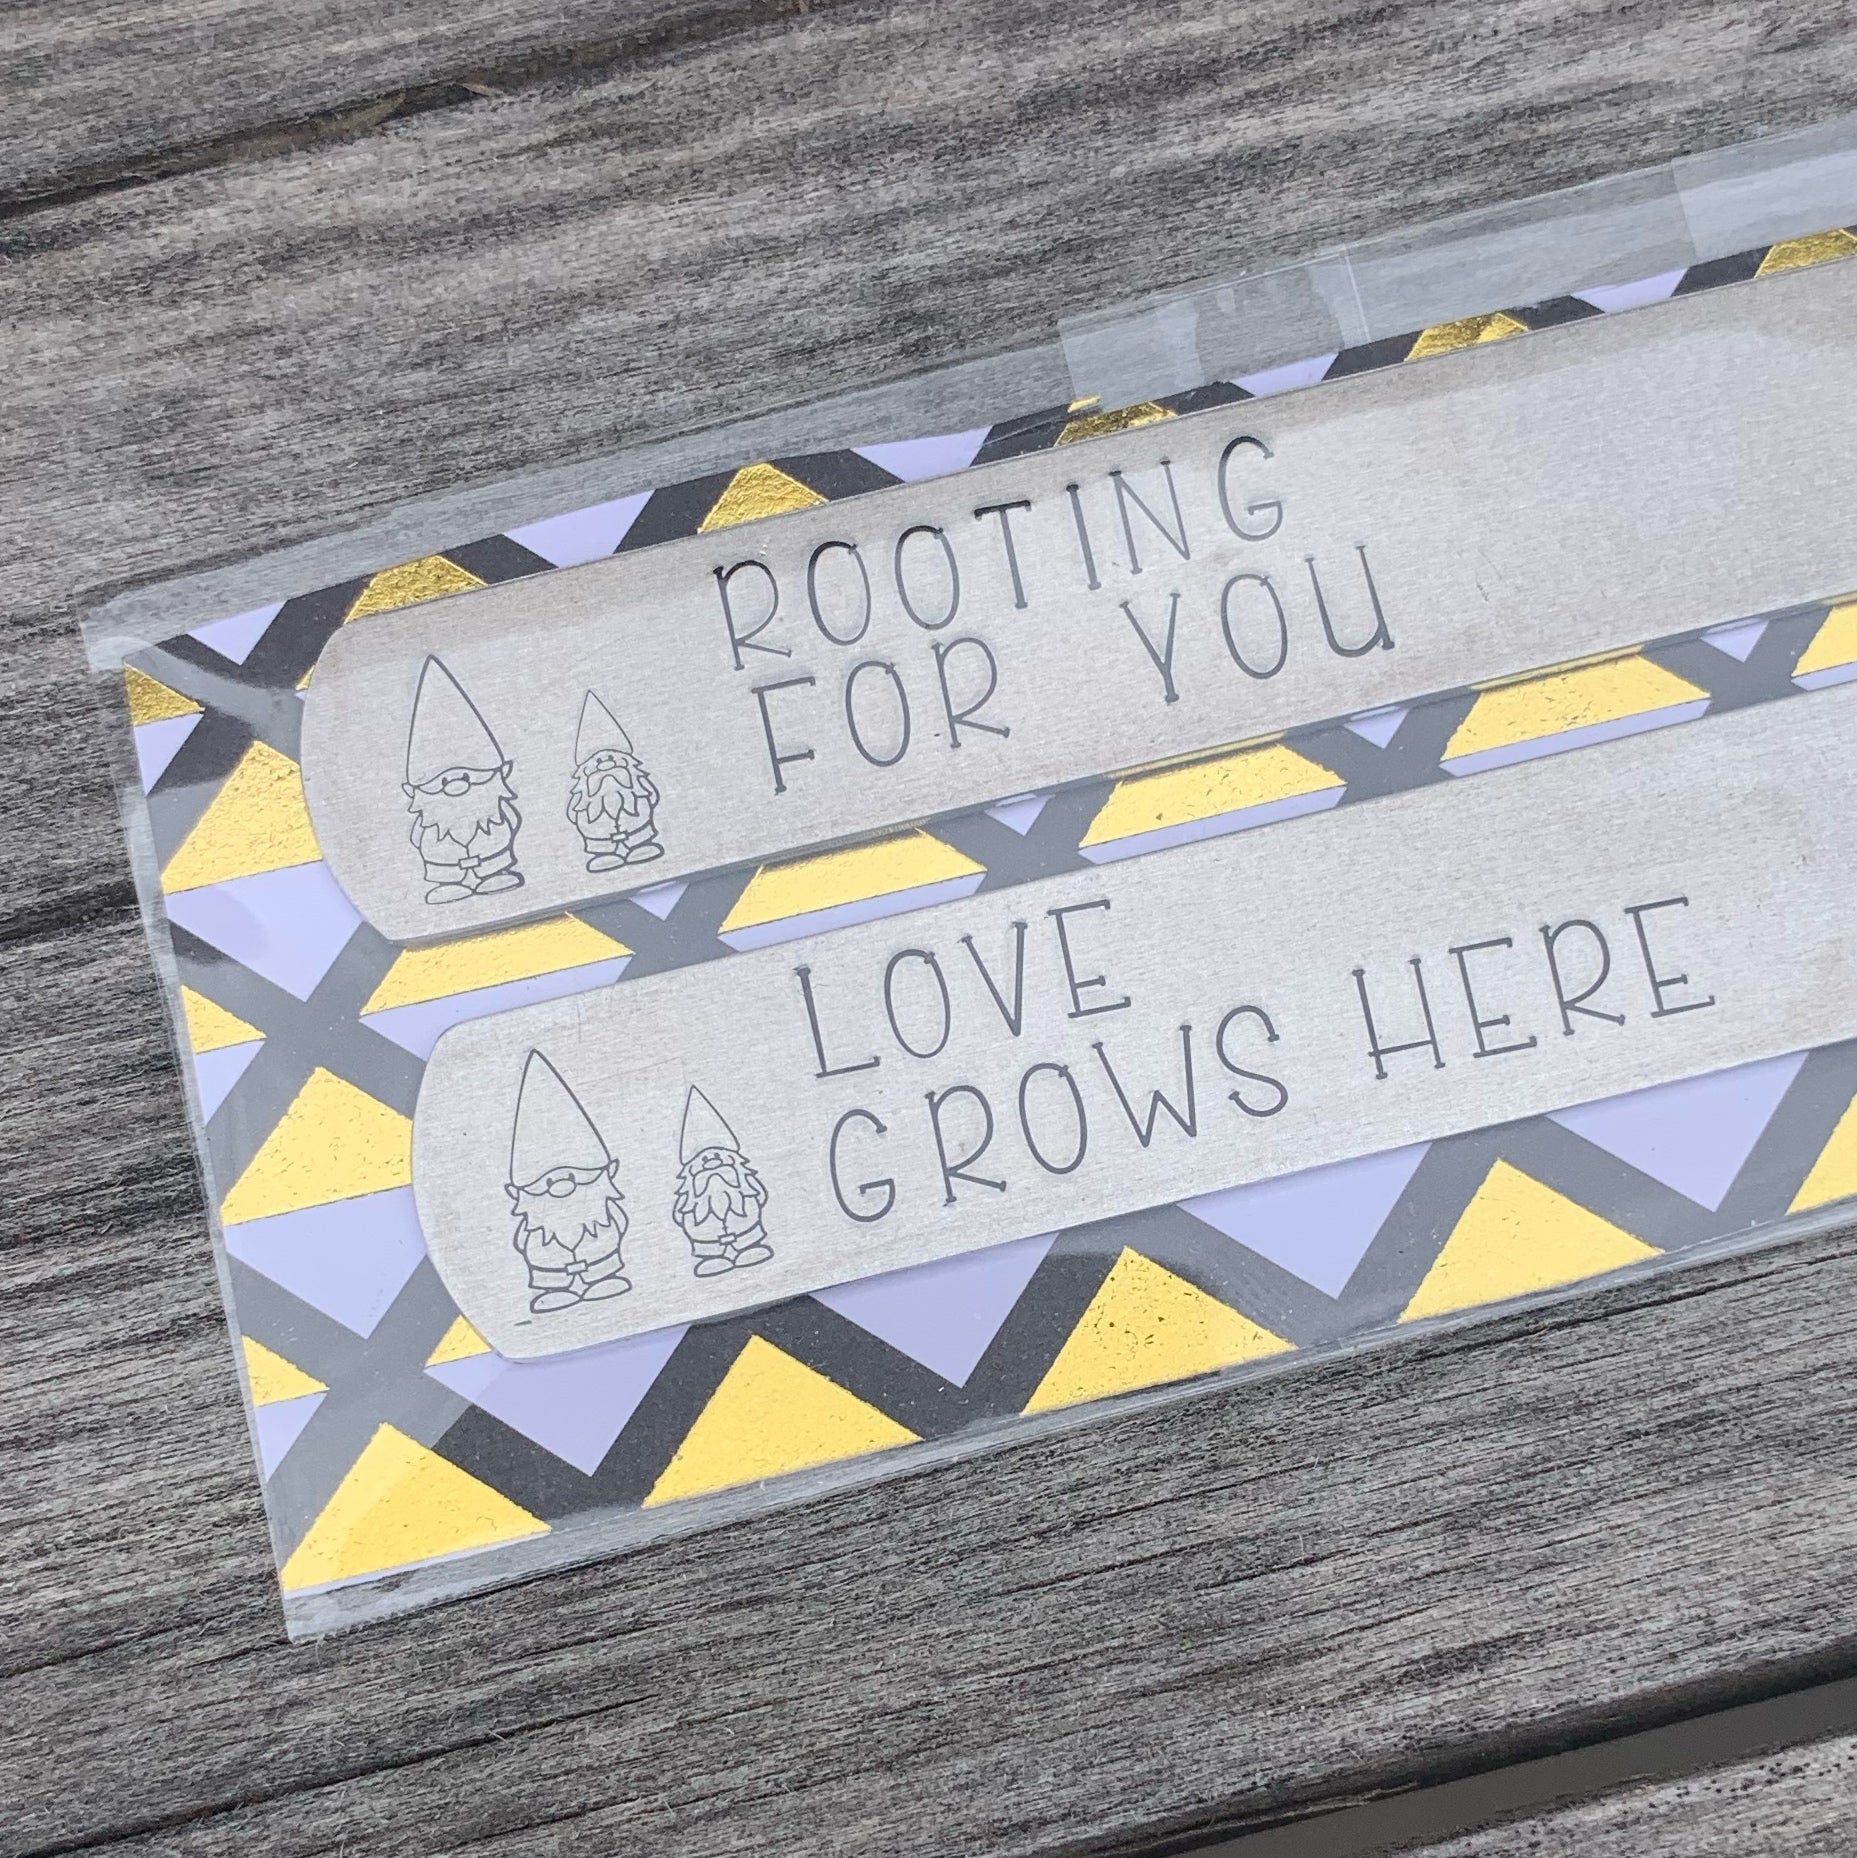 ROOTING
FOR YOU
LOVE
GROWS HERE